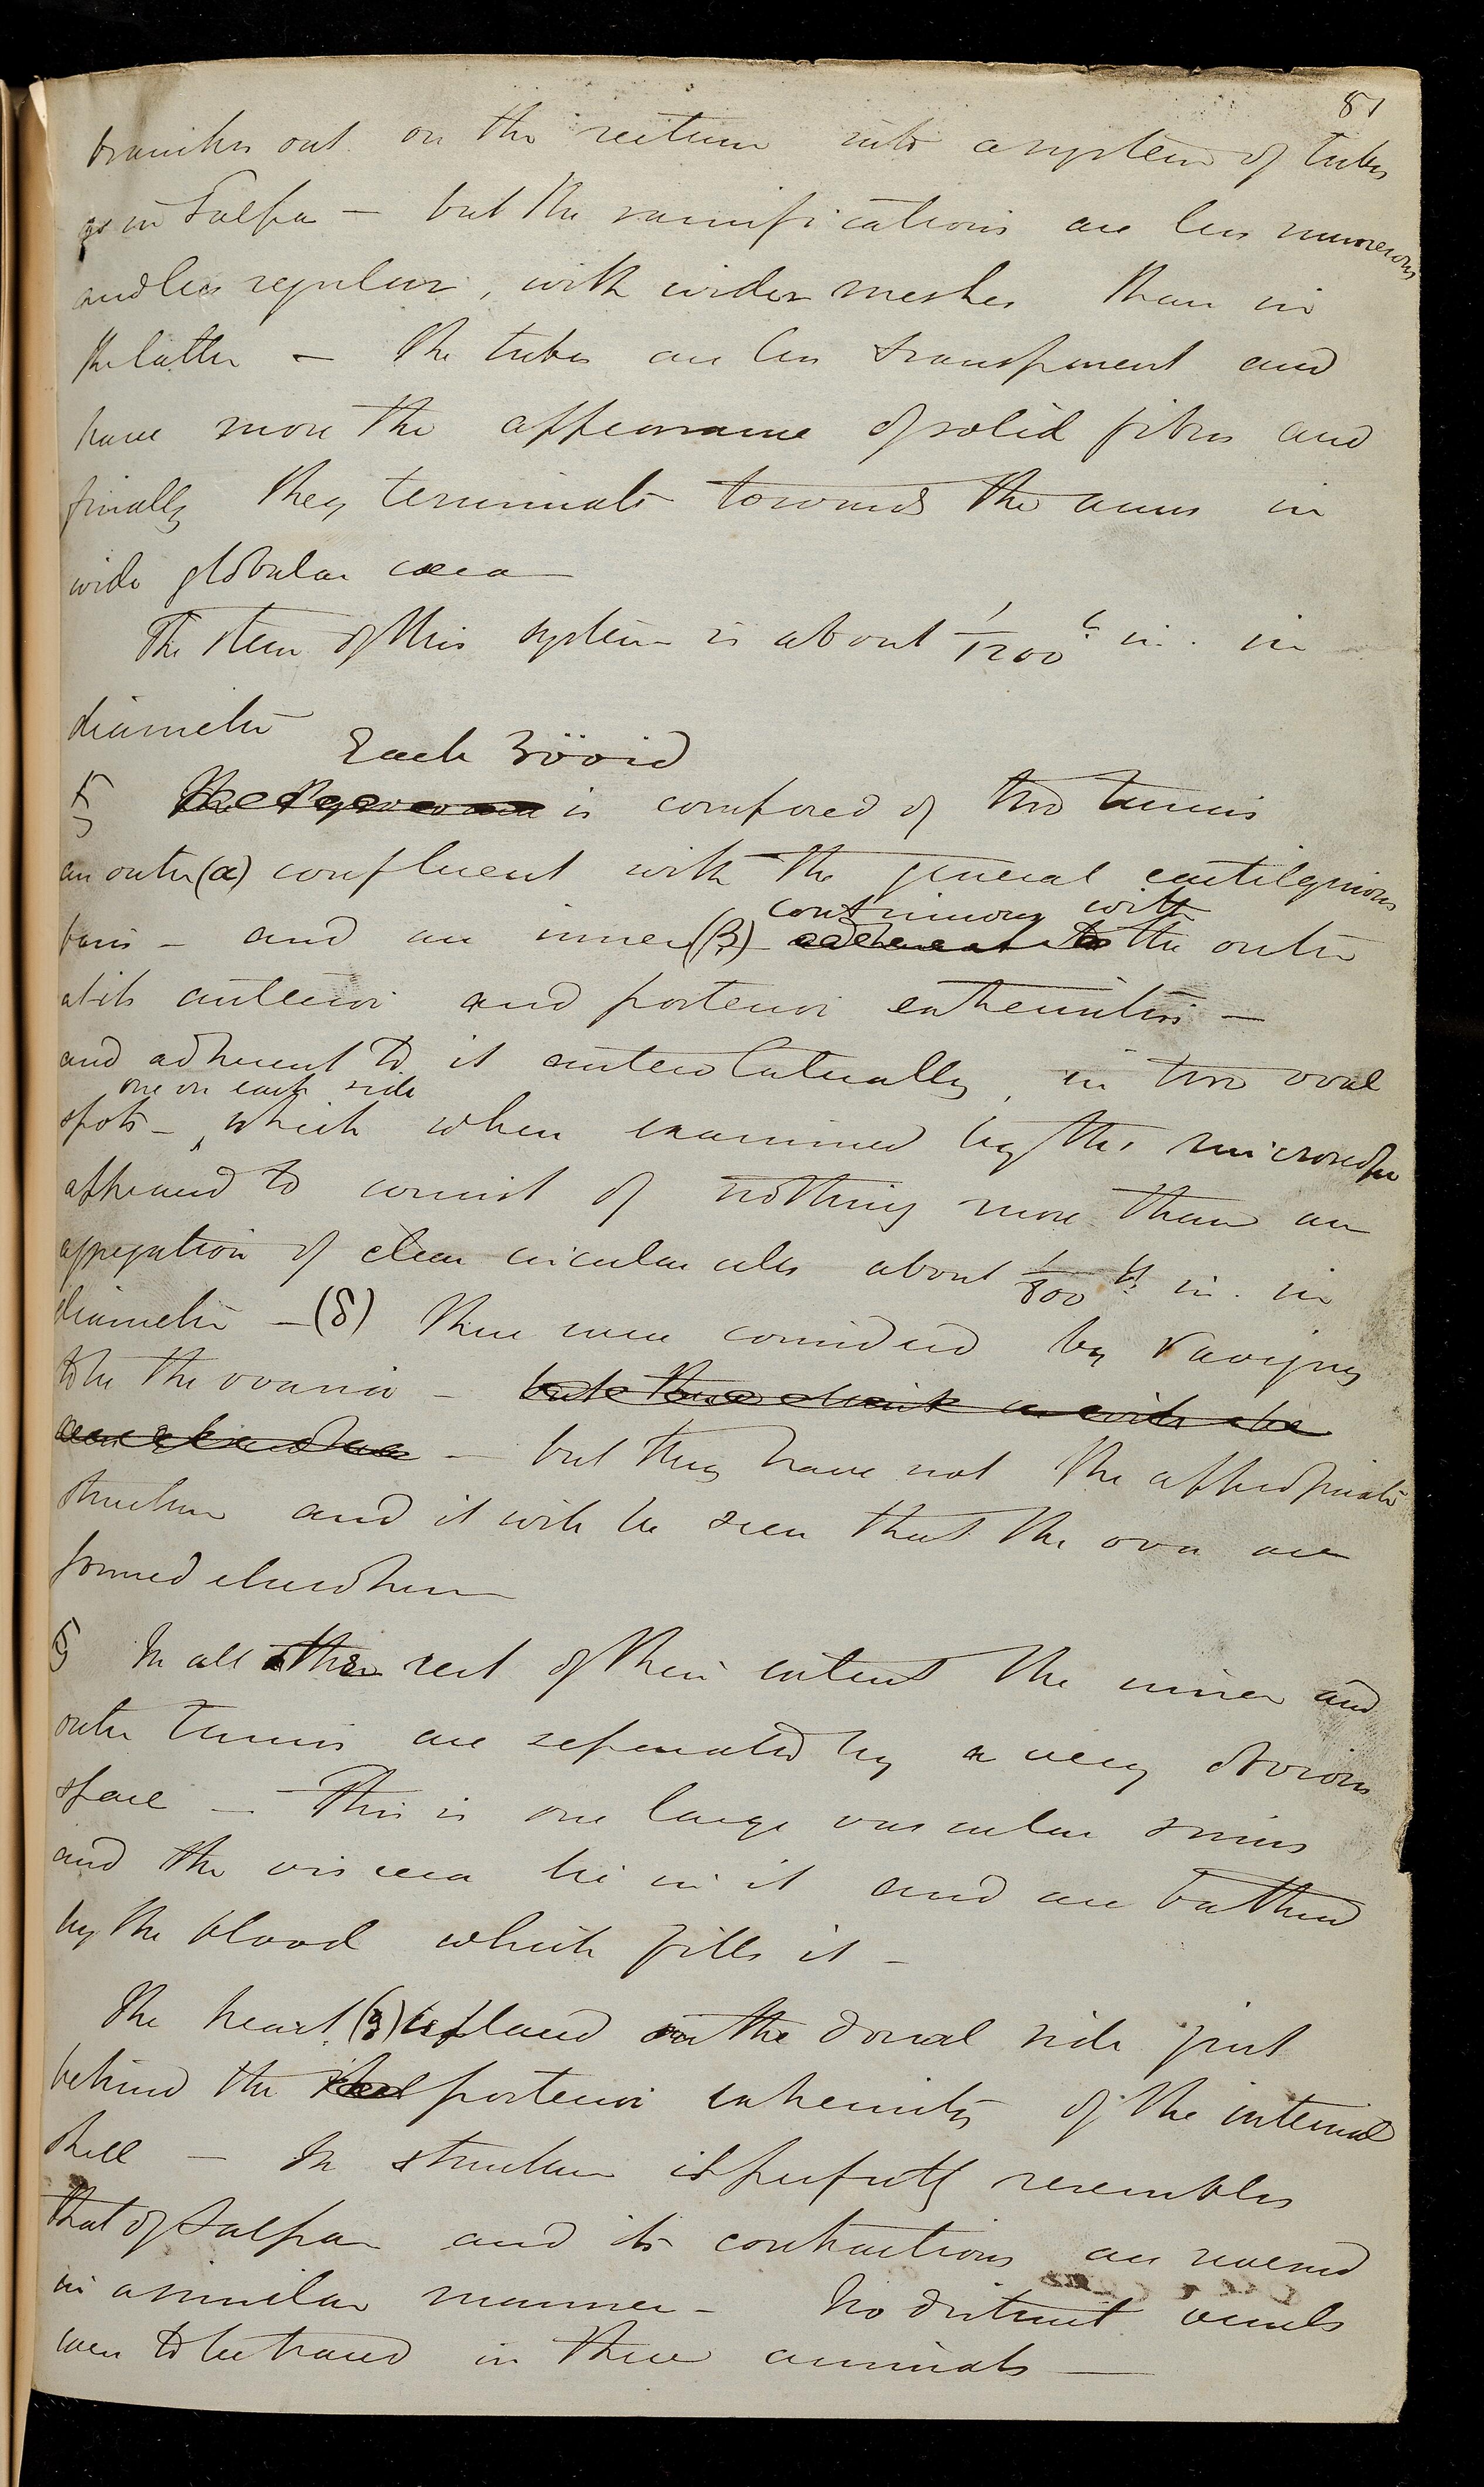 81
branches out on the rectum into a system of tubes
as in Salpa — but the ramifications are less numerous
and less regular, with wider meshes than in
the latter — the tubes are less transparent and
have more the appearance of solid fibres and
finally they terminate towards the anus in
wide globular cæca —
The stem of this system is about 1/1200th in. in
diameter
Each Zöoid
§ is composed of two tunics
an outer (α) confluent with the general cartilaginous
continuous with
basis — and an inner (β) adherent to the outer
at its anterior and posterior extremities —
and adherent to it anterolaterally, in two oval
one on each side
spots — which when examined by the microscope
appeared to consist of nothing more than an
aggregation of clear circular cells about 1/800th in. in
diameter — (δ) these were considered by Savigny
to be the ovaria —
— but they have not the appropriate
structure and it will be seen that the ova are
formed elsewhere
§ In all the rest of their extent the inner and
outer tunics are separated by a very obvious
space — This is one large vascular sinus
and the viscera lie in it and are bathed
by the blood which fills it —
The heart is placed on the dorsal side just
behind the posterior extremity of the internal
shell — In structure it perfectly resembles
that of Salpa and its contractions are reversed
in a similar manner — No distinct vessels
were to be traced in these animals —